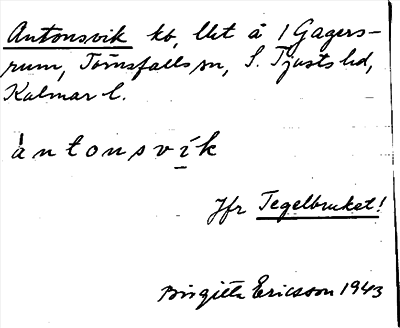 Antonsvik hd, lht å 1 Gagers-
rum, Törnsfalls sn, S. Tjusts hd,
Kalmar l.
àntonsvík
Jfr Tegelbruket!
Birgitta Ericsson 1943